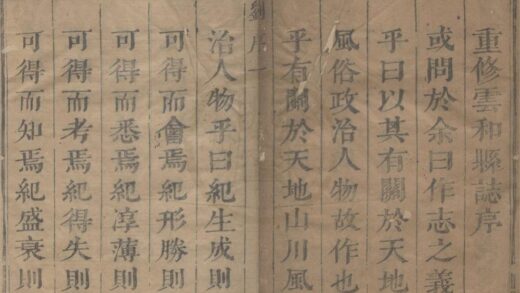 重修雲和縣誌序
或問於余曰作志之義
乎曰以其有關於天地
風俗政治人物故作也
乎有關於天地山川風
劉序一
治人物乎曰紀生成則
可得而會焉紀形勝則
可得而悉焉紀淳薄則
可得而考焉紀得失則
可得而知焉紀盛衰則